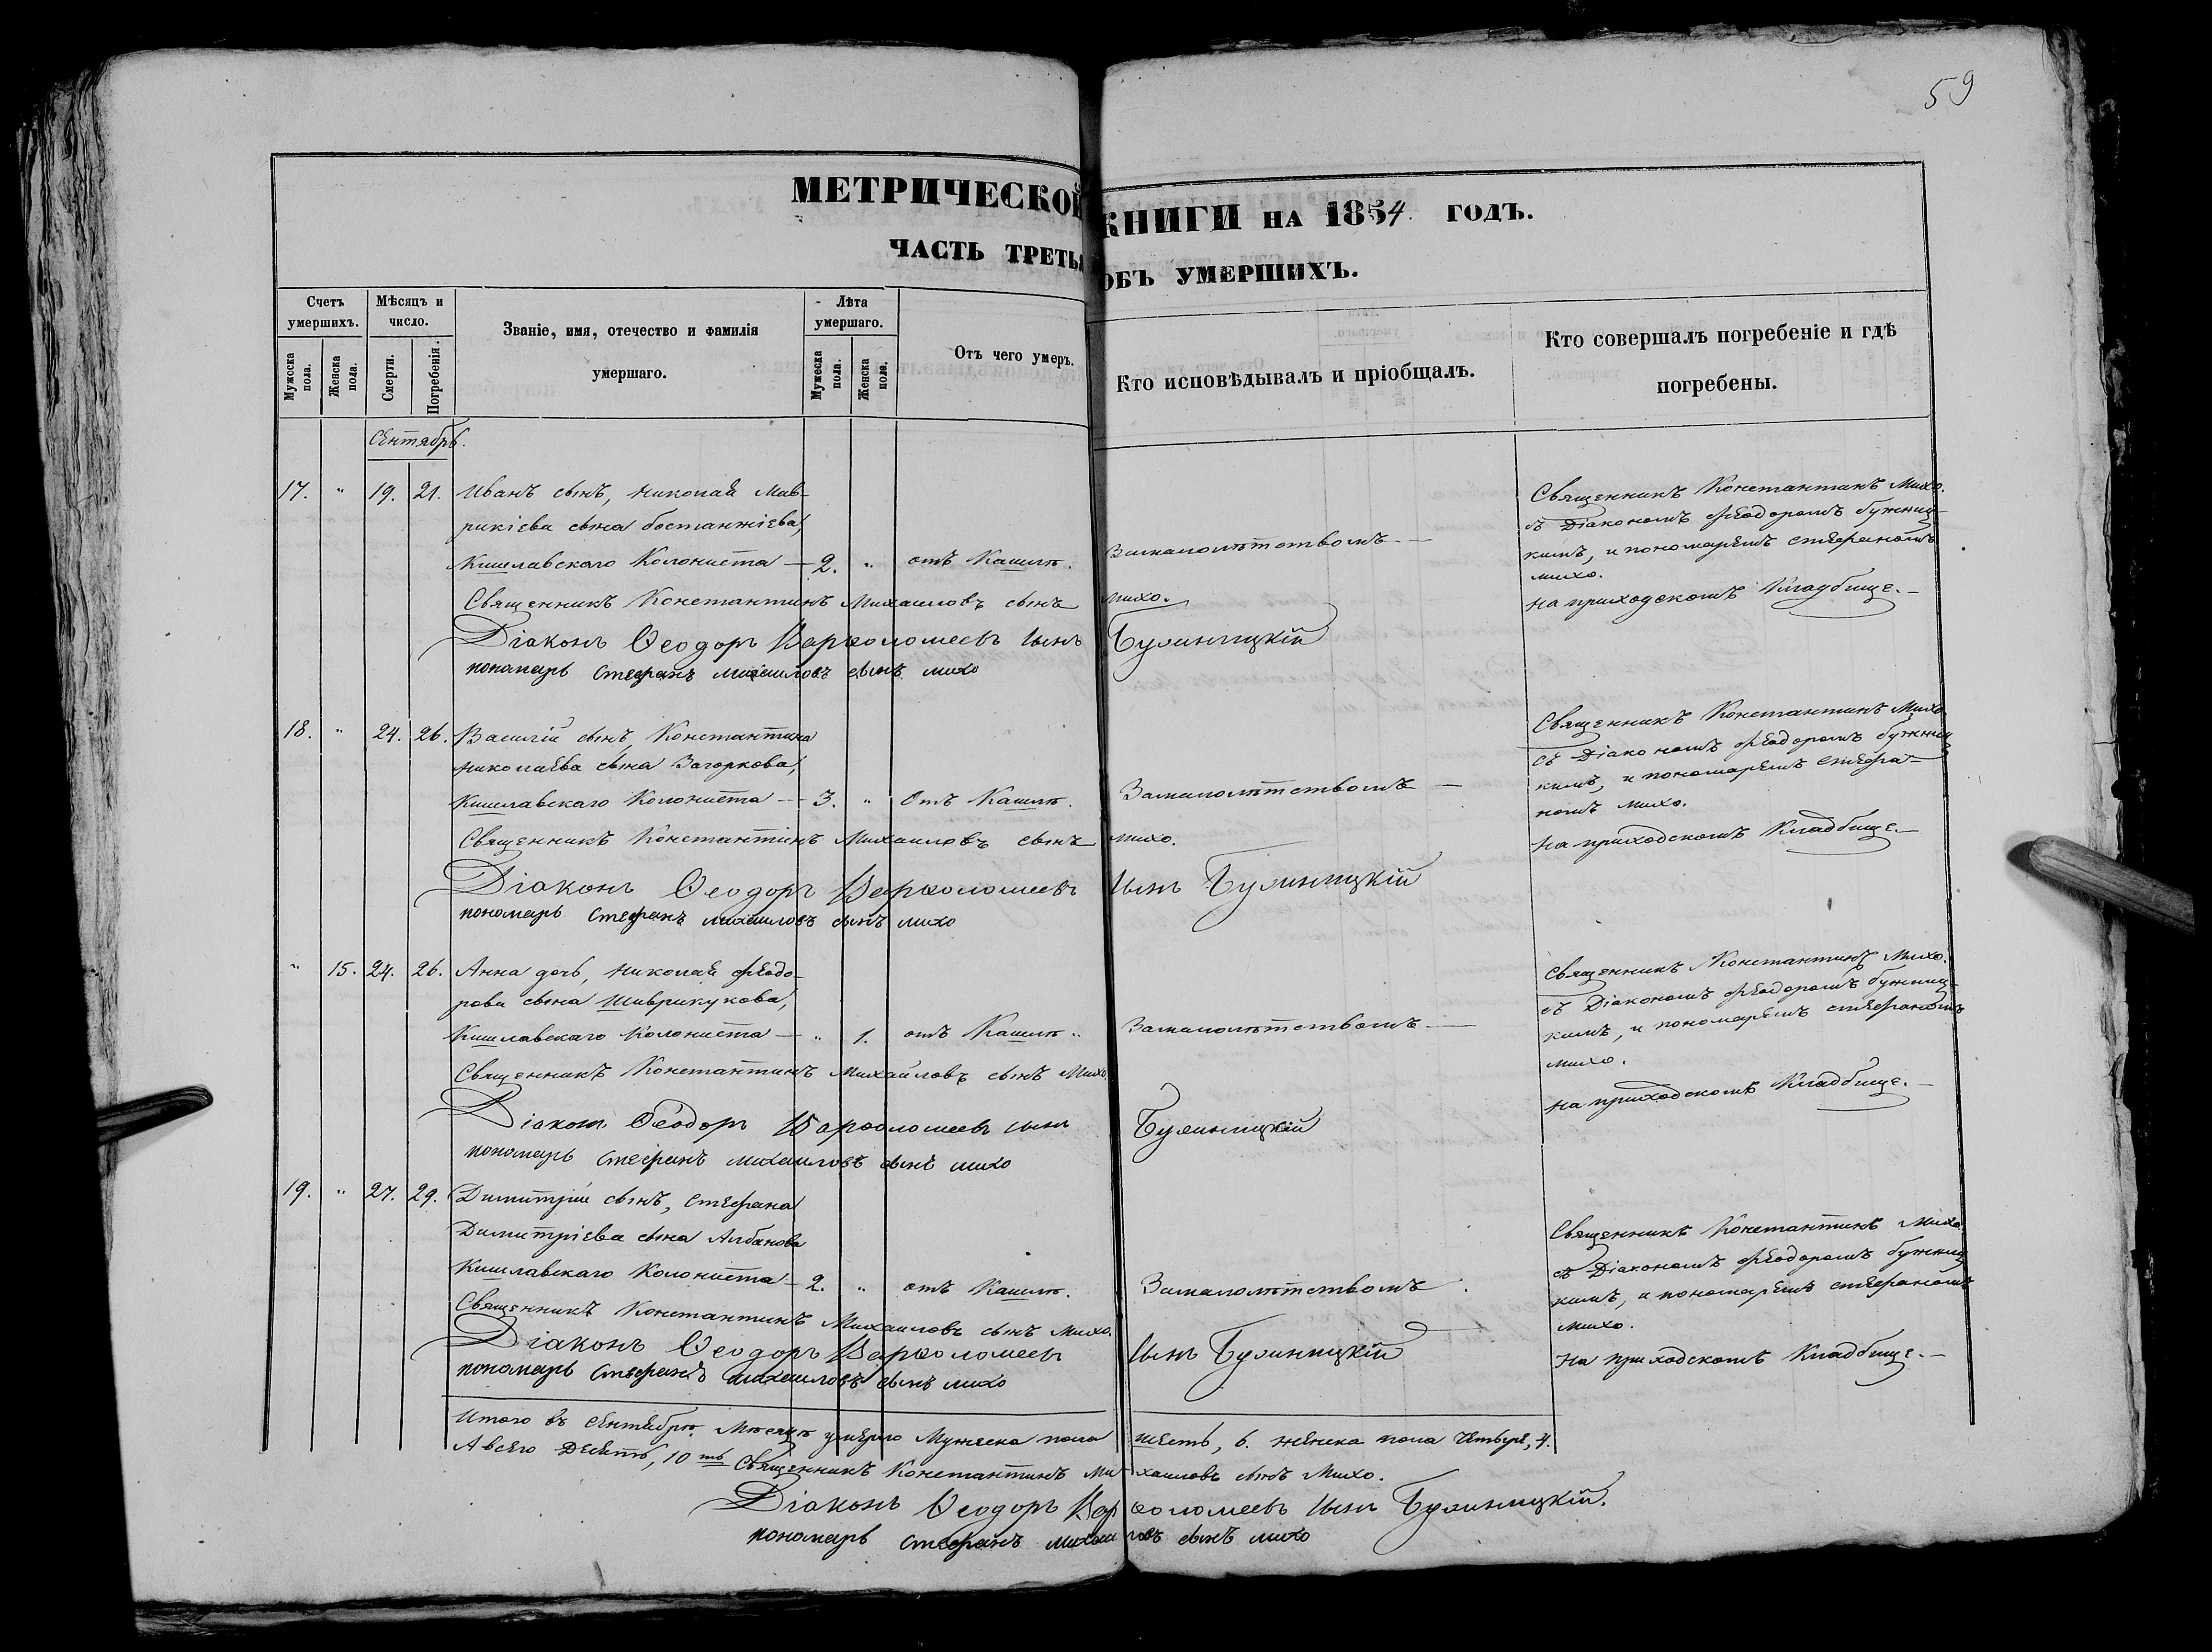 59
МЕТРИЧЕСКОЙ КНИГИ НА 1854. ГОДЪ.
ЧАСТЬ ТРЕТЬЯ ОБЪ УМЕРШИХЪ.
Счетъ умершихъ.
Мужеска пола.
Женска пола.
Мѣсяцъ и число.
Смерти.
Погребенія.
Званіе, имя, отечество и фамилія умершаго.
Лѣта умершаго.
Мужеска пола.
Женска пола.
Отъ чего умеръ.
Кто исповѣдывалъ и пріобщалъ.
Кто совершалъ погребеніе и гдѣ погребены.
Сентябрь.
17. " 19. 21. Иванъ сынъ, Николая Мав-
рикіева сына бостанжіева,
Кишлавскаго Колониста — 2. " отъ Кашля.
Замалолѣтствомъ. —
Священникъ Константинъ Михо.
съ Діакономъ Феодоромъ бужниц-
кимъ, и пономаремъ Стефаномъ
михо.
на приходскомъ Кладбище. —
Священникъ Константинъ Михаиловъ сынъ михо.
Діаконъ Ѳеодоръ Варѳоломеевъ сынъ Бужницкій
пономарь Стефанъ михаиловъ сынъ михо
18. " 24. 26. Василій сынъ, Константина
Николаева сына Загоркова,
Кишлавскаго Колониста — 3. " Отъ Кашля.
Замалолѣтствомъ —
Священникъ Константинъ Михо
съ Діакономъ Феодоромъ бужниц
кимъ, и пономаремъ Стефа-
номъ михо.
На приходскомъ Кладбище. —
Священникъ Константінъ Михаиловъ сынъ михо.
Діаконъ Ѳеодоръ Варѳоломеевъ сынъ Бужницкій
пономарь Стефанъ михаиловъ сынъ михо
" 15. 24. 26. Анна дочь, Николая Феодо-
рова сына Шиврикукова,
Кишлавскаго Колониста — " 1. отъ Кашля.
Замалолѣтствомъ —
Священникъ Константинъ Михо.
съ Діакономъ Феодоромъ бужниц-
кимъ, и пономаремъ стефаномъ
михо.
на приходскомъ Кладбище. —
Священникъ Константинъ Михаиловъ сынъ Михо,
Діаконъ Ѳеодоръ Варѳоломеевъ сынъ Бужницкій
пономарь Стефанъ михаиловъ сынъ михо
19. " 27. 29. Димитрій сынъ, Стефана
Димитріева сына Албанова
Кишлавскаго Колониста — 2. " отъ Кашля.
Замалолѣтствомъ.
Священникъ Константинъ Михо.
съ Діакономъ Феодоромъ бужниц
кимъ, и пономаремъ стефаномъ
михо.
На приходскомъ Кладбище. —
Священникъ Константинъ Михаиловъ сынъ Михо.
Діаконъ Ѳеодоръ Варѳоломеевъ сынъ Бужницкій
пономарь Стефанъ михаиловъ сынъ михо
Итого въ Сентябрѣ Мѣсяцѣ умерло Мужеска пола шесть, 6. женска пола четыре, 4.
А всего Десять, 10ть Священникъ Константинъ Михаиловъ сынъ Михо.
Діаконъ Ѳеодоръ Варѳоломеевъ сынъ Бужницкій.
пономарь Стефанъ михаиловъ сынъ михо